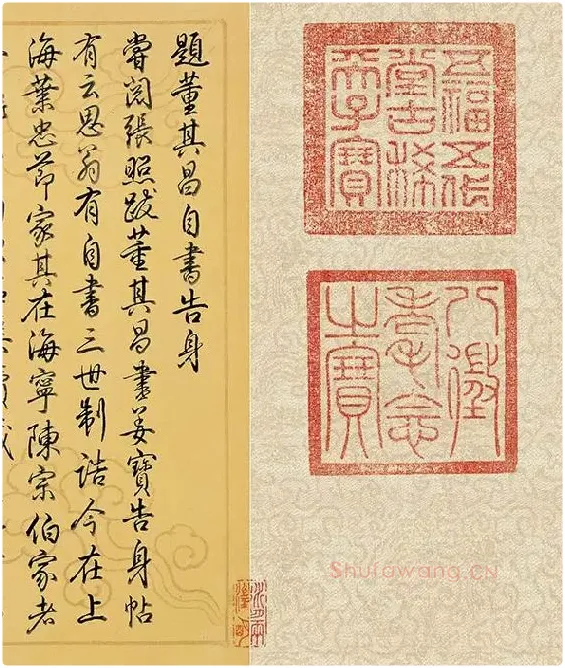 五福五代
堂古稀
天子寶
八徵
耄念
之寶
題董其昌自書告身
嘗閱張照跋董其昌書姜寶告身帖
有云思翁有自書三世制誥今在上
海葉忠節家其在海寧陳宗伯家者
水月兩
澄明
Shufawang.CN